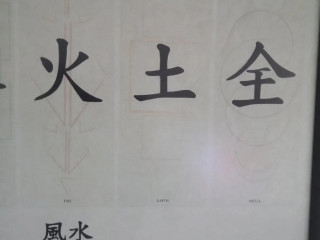 火 土 全
FIRE EARTH METAL
風水